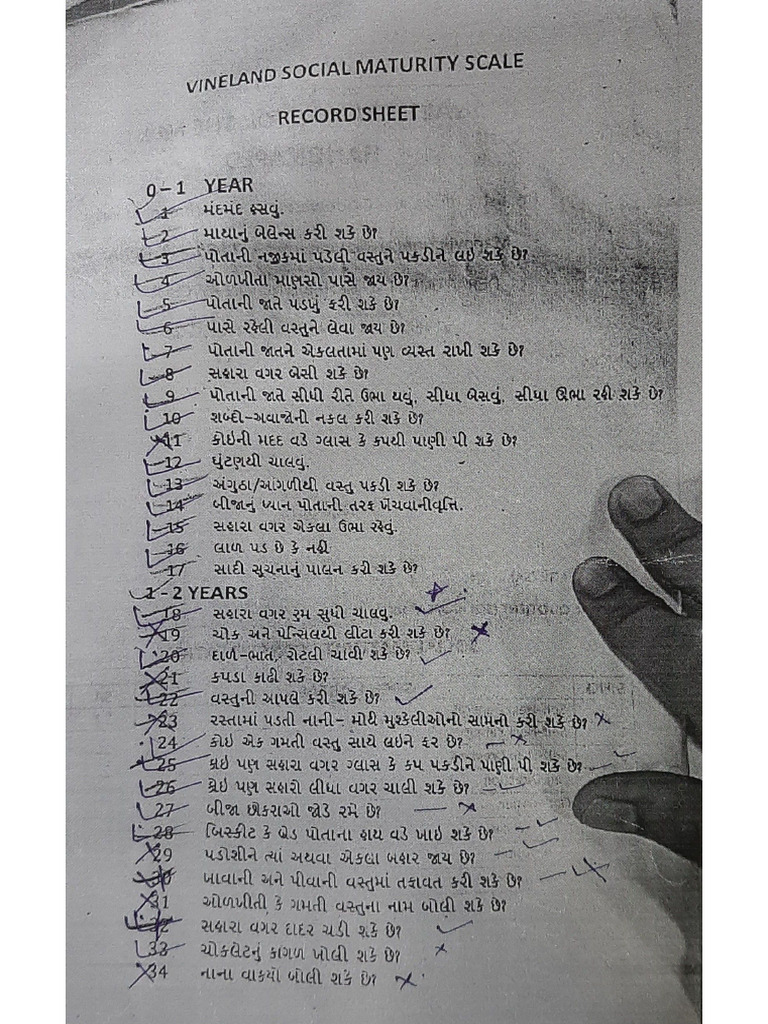 VINELAND SOCIAL MATURITY SCALE
RECORD SHEET
0 – 1 YEAR
1 મંદમંદ હસવું.
2 માથાનું બેલેન્સ કરી શકે છે?
3 પોતાની નજીકમાં પડેલી વસ્તુને પકડીને લઇ શકે છે?
4 ઓળખીતા માણસો પાસે જાય છે?
5 પોતાની જાતે પડખું ફરી શકે છે?
6 પાસે રહેલી વસ્તુને લેવા જાય છે?
7 પોતાની જાતને એકલતામાં પણ વ્યસ્ત રાખી શકે છે?
8 સહારા વગર બેસી શકે છે?
9 પોતાની જાતે સીધી રીતે ઉભા થવું, સીધા બેસવું, સીધા ઊભા રહી શકે છે?
10 શબ્દો-અવાજોની નકલ કરી શકે છે?
11 કોઇની મદદ વડે ગ્લાસ કે કપથી પાણી પી શકે છે?
12 ઘુંટણથી ચાલવું.
13 અંગુઠા/આંગળીથી વસ્તુ પકડી શકે છે?
14 બીજાનું ધ્યાન પોતાની તરફ ખેંચવાનીવૃત્તિ.
15 સહારા વગર એકલા ઉભા રહેવું.
16 લાળ પડ છે કે નહીં
17 સાદી સુચનાનું પાલન કરી શકે છે?
1 – 2 YEARS
18 સહારા વગર રુમ સુધી ચાલવુ.
19 ચોક અને પેન્સિલથી લીટા કરી શકે છે?
20 દાળ-ભાત, રોટલી ચાવી શકે છે?
21 કપડા કાઢી શકે છે?
22 વસ્તુની આપલે કરી શકે છે?
23 રસ્તામાં પડતી નાની- મોટી મુશ્કેલીઓનો સામનો કરી શકે છે?
24 કોઇ એક ગમતી વસ્તુ સાથે લઇને ફર છે?
25 કોઇ પણ સહારા વગર ગ્લાસ કે કપ પકડીને પાણી પી શકે છે?
26 કોઇ પણ સહારો લીધા વગર ચાલી શકે છે?
27 બીજા છોકરાઓ જોડે રમે છે?
28 બિસ્કીટ કે બ્રેડ પોતાના હાથ વડે ખાઇ શકે છે?
29 પડોશીને ત્યાં અથવા એકલા બહાર જાય છે?
30 ખાવાની અને પીવાની વસ્તુમાં તફાવત કરી શકે છે?
31 ઓળખીતી કે ગમતી વસ્તુના નામ બોલી શકે છે?
32 સહારા વગર દાદર ચડી શકે છે?
33 ચોકલેટનું કાગળ ખોલી શકે છે?
34 નાના વાક્યો બોલી શકે છે?